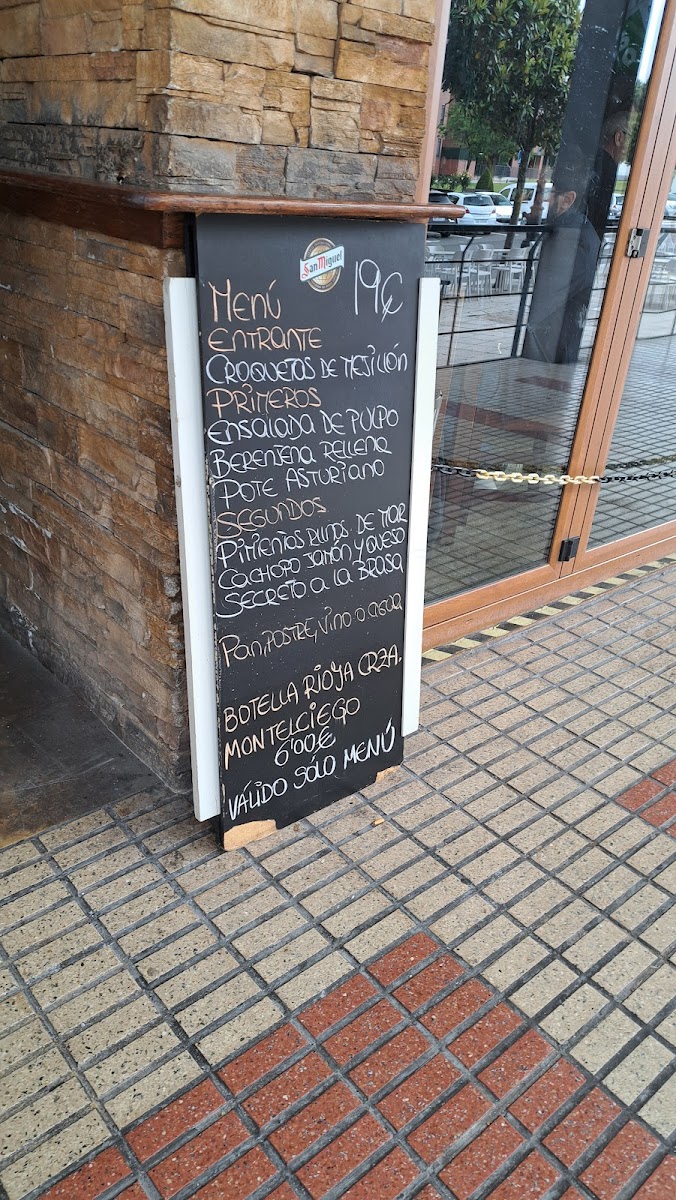 San Miguel
Menú 19€
ENTRANTE
CROQUETAS DE MEJILLÓN
PRIMEROS
ENSALADA DE PULPO
BERENJENA RELLENA
POTE ASTURIANO
SEGUNDOS
PIMIENTOS DE MAR
CACHOPO JAMÓN Y QUESO
SECRETO A LA BRASA
PAN, POSTRE, VINO O AGUA
BOTELLA RIOJA CRZA.
MONTELCIEGO
6'00€
VÁLIDO SÓLO MENÚ